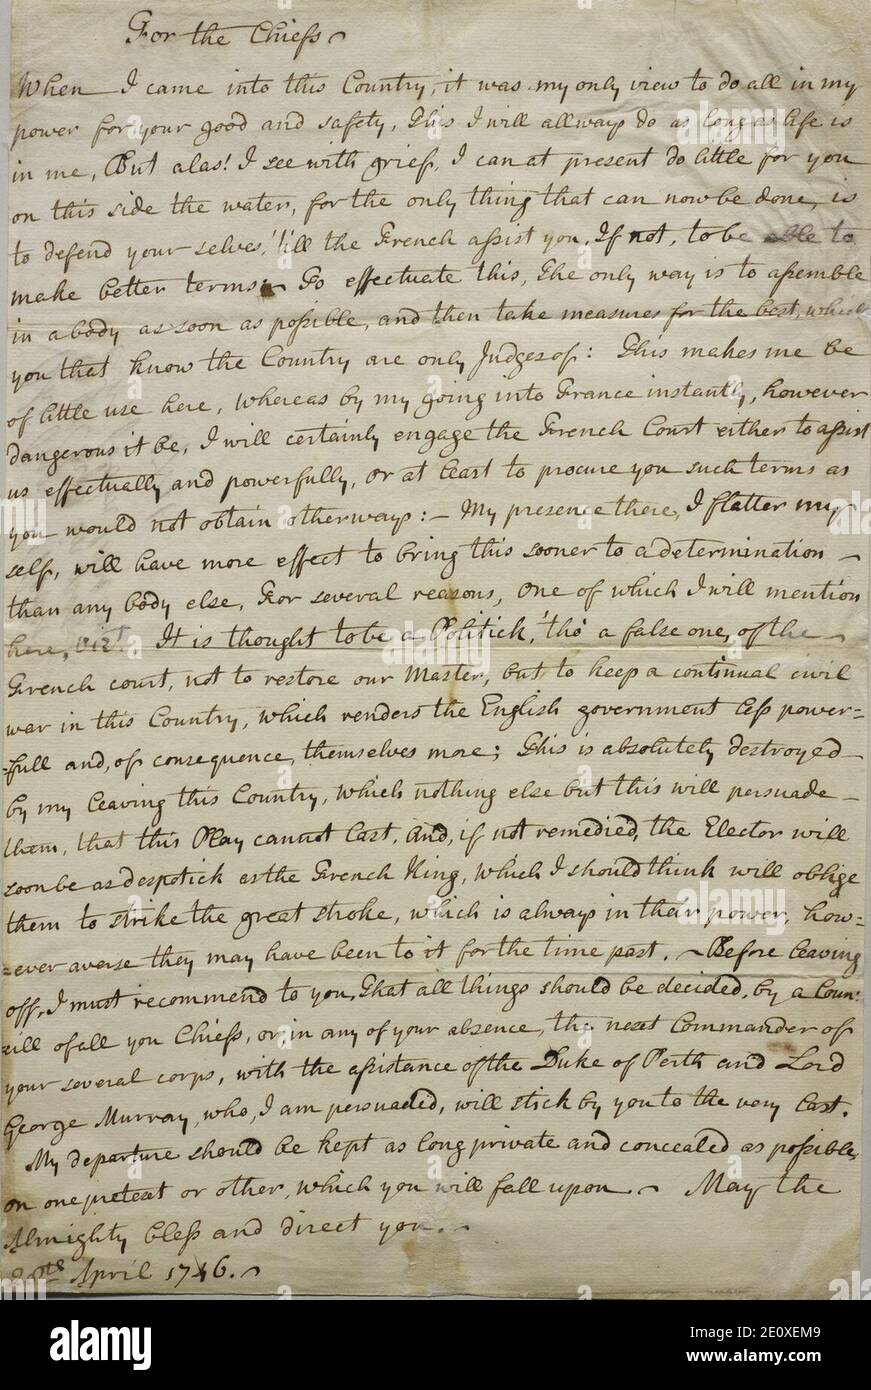 For the Chiefs
When I came into this Country, it was my only view to do all in my
power for your good and safety, This I will allways do as long as life is
in me, But alas! I see with grief, I can at present do little for you
on this side the water, for the only thing that can now be done, is
to defend your selves, 'till the French assist you, If not, to be able to
make better terms. To effectuate this, The only way is to assemble
in a body as soon as possible, and then take measures for the best, which
you that know the Country are only Judges of: This makes me be
of little use here, Whereas by my going into France instantly, however
dangerous it be, I will certainly engage the French Court either to assist
us effectually and powerfully, or at least to procure you such terms as
you would not obtain otherways: – My presence there, I flatter my
self, will have more effect to bring this sooner to a determination –
than any body else, For several reasons, one of which I will mention
here, vizt. It is thought to be a Politick, 'tho' a false one, of the
French court, not to restore our Master, but to keep a continual civil
war in this Country, which renders the English government less power=
=full and, of consequence, themselves more; This is absolutely destroyed
by my leaving this Country, which nothing else but this will persuade
them, that this Play cannot last, and, if not remedied, the Elector will
soon be as despotick as the French King, which I should think will oblige
them to strike the great stroke, which is always in their power, how=
=ever averse they may have been to it for the time past. Before leaving
off, I must recommend to you, That all things should be decided, by a Coun=
=cill of all you Chiefs, or, in any of your absence, the next Commander of
your several corps, with the assistance of the Duke of Perth and Lord
George Murray, who, I am persuaded, will stick by you to the very last.
My departure should be kept as long private and concealed as possible,
on one pretext or other, which you will fall upon. May the
Almighty bless and direct you.
April 1746.
alamy
Image ID: 2E0XEM9
www.alamy.com